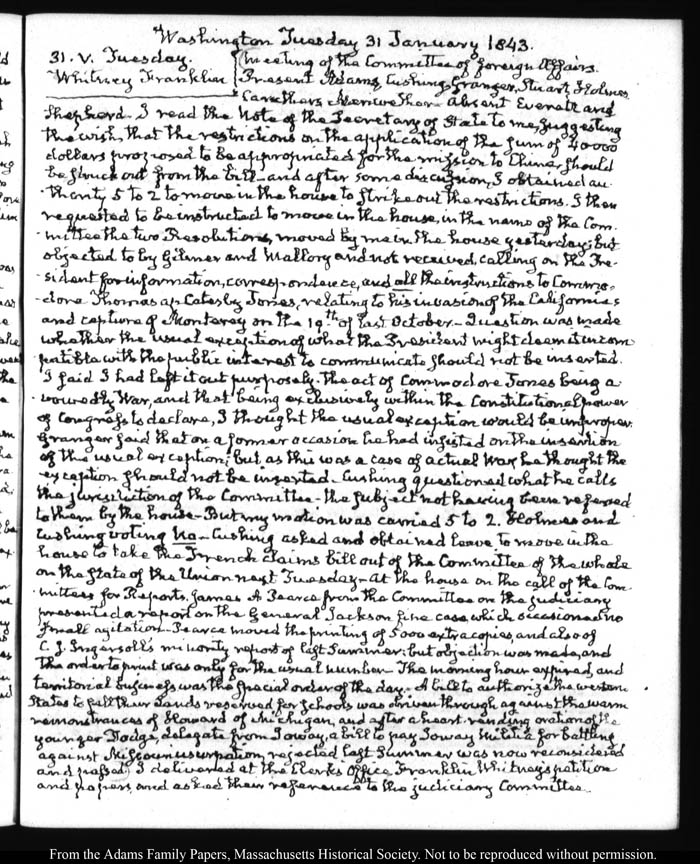 Washington Tuesday 31 January 1843.
31. V. Tuesday.
Whitney Franklin
Meeting of the Committee of foreign Affairs.
Present Adams, Cushing, Granger, Stuart, Holmes
Caruthers, Meriwether. Absent Everett and
Shepperd. I read the Note of the Secretary of State to me, suggesting
the wish, that the restrictions on the application of the sum of 40000
dollars proposed to be appropriated for the mission to China, should
be struck out from the bill—and after some discussion, I obtained au-
thority 5 to 2 to move in the house to strike out the restrictions. I then
requested to be instructed to move in the house, in the name of the Com-
mittee the two Resolutions, moved by me in the house yesterday; but
objected to by Gilmer and Mallory and not received, calling on the Pre-
sident for information, correspondence, and all the instructions to Commo-
dore Thomas ap Catesby Jones, relating to his invasion of the Californias
and capture of Monterey on the 19th of last October—Question was made
whether the usual exception of what the President might deem it incom-
patible with the public interest to communicate should not be inserted.
I said I had left it out purposely. The act of Commodore Jones being a-
vowedly War, and that being exclusively within the Constitutional power
of Congress to declare, I thought the usual exception would be improper.
Granger said that on a former occasion he had insisted on the insertion
of the usual exception; but as this was a case of actual War he thought the
exception should not be inserted. Cushing questioned what he calls
the jurisdiction of the Committee—the subject not having been referred
to them by the house—But my motion was carried 5 to 2. Holmes and
Cushing voting No—Cushing asked and obtained leave to move in the
house to take the French claims bill out of the Committee of the whole
on the State of the Union next Tuesday—At the house on the call of the Com-
mittees for Reports, James A Pearce from the Committee on the judiciary
presented a report on the General Jackson fine case, which occasioned no
small agitation—Pearce moved the printing of 5000 extra copies, and also of
C. J. Ingersoll's minority report of last Summer; but objection was made, and
the order to print was only for the usual number—The morning hour expired, and
territorial business was the special order of the day—A bill to authorize the western
States to sell their Lands reserved for schools was driven through against the warm
remonstrances of Howard of Michigan, and after a heart-rending oration of the
younger Dodge, delegate from Ioway, a bill to pay Ioway Militia for battling
against Missouri usurpation, rejected last Summer was now reconsidered
and passed. I delivered at the Clerk's Office Franklin Whitney's petition
and papers, and asked their reference to the judiciary Committee.
From the Adams Family Papers, Massachusetts Historical Society. Not to be reproduced without permission.